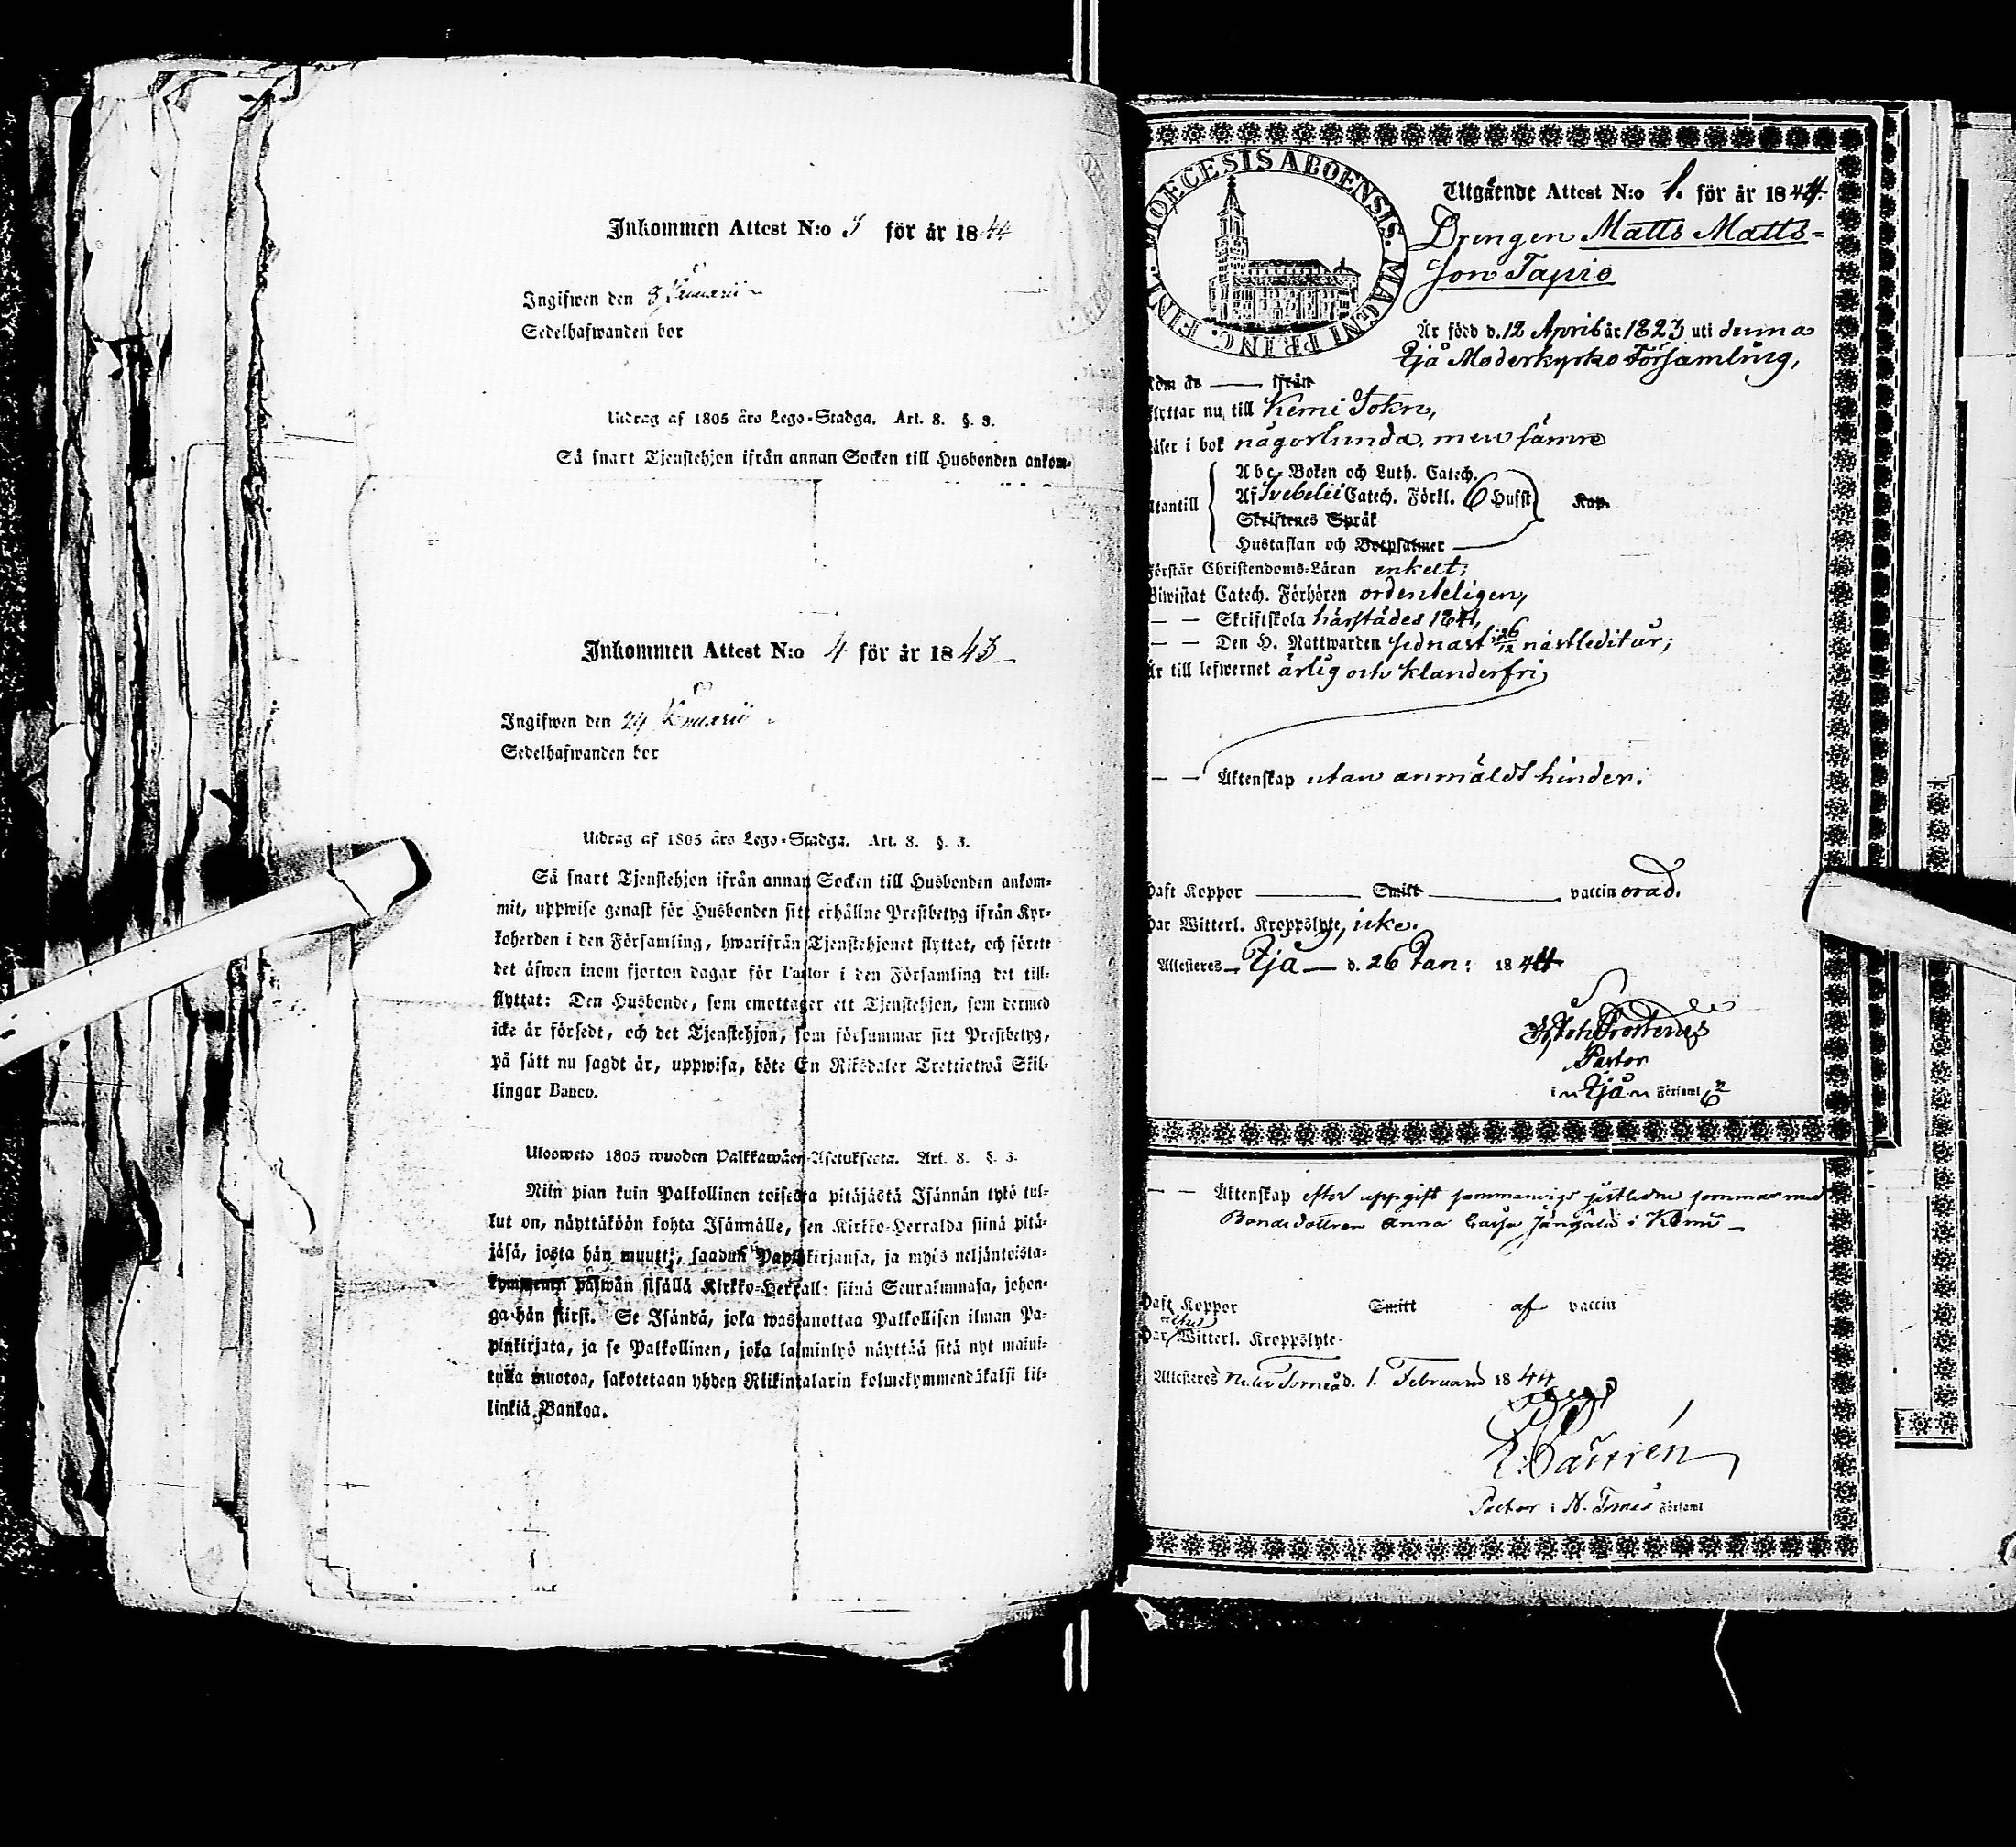 Inkommen Attest N:o 3 för år 1844
Ingifwen den 8 Januarii
Sedelhafwanden bor
Utdrag af 1805 års Lego-Stadga. Art. 8. §. 3.
Så snart Tjenstehjon ifrån annan Socken till Husbonden ankom-
Inkommen Attest N:o 4 för år 1843
Ingifwen den 24 Januarii
Sedelhafwanden bor
Utdrag af 1805 års Lego-Stadga. Art. 8. §. 3.
Så snart Tjenstehjon ifrån annan Socken till Husbonden ankom-
mit, uppwise genast för Husbonden sitt erhållne Prestbetyg ifrån Kyr-
koherden i den Församling, hwarifrån Tjenstehjonet flyttat, och förete
det äfwen inom fjorton dagar för Pastor i den Församling det till-
flyttat: Den Husbonde, som emottager ett Tjenstehjon, som dermed
icke är försedt, och det Tjenstehjon, som försummar sitt Prestbetyg,
på sätt nu sagdt är, uppwisa, böte En Riksdaler Trettiotwå Skil-
lingar Banco.
Ulosweto 1805 wuoden Palkkawäen-Asetuksesta. Art. 8. §. 3.
Niin pian kuin Palkollinen toisesta pitäjästä Isännän tykö tul-
lut on, näyttäköön kohta Isännälle, sen Kirkko-Herralda siinä pitä-
jäsä, josta hän muutti, saadun Papinkirjansa, ja myös neljäntoista-
kymmenen päiwän sisällä Kirkko-Herrall: siinä Seurakunnasa, johon-
ga hän siirsi. Se Isändä, joka wastanottaa Palkollisen ilman Pa-
pinkirjata, ja se Palkollinen, joka laiminlyö näyttää sitä nyt maini-
tulla muotoa, sakotetaan yhden Riikintalarin kolmekymmendäkaksi kil-
linkiä Bankoa.
DIOECESIS ABOENSIS. MAGNI PRINC. FINL.
Utgående Attest N:o 1. för år 1844.
Drengen Matts Matts-
son Tapio
Är född d. 12 April år 1823 uti denna
Moderkyrko Församling,
Kom år —— ifrån
flyttar nu till Kemi Sokn,
Läser i bok någorlunda, men sämre
Utantill
Abc-Boken och Luth. Catech.
Af Svebelii Catech. Förkl. 6 Hufst Kap.
Skriftenes Språk
Hustaflan och Botpsalmer
Förstår Christendoms-Läran enkelt;
Biwistat Catech. Förhören ordenteligen,
— — Skriftskola härstädes 1841,
— — Den H. Nattwarden sednast 26/12 nästledit år;
Är till lefwernet ärlig och klanderfri;
— — Äktenskap utan anmäldt hinder.
Haft Koppor —— Smitt —— vaccinerad.
Har Witterl. Kroppslyte, icke.
Attesteres — d. 26 Jan: 1844
Pastor
i Församl
— — Äktenskap efter uppgift sommar med
Bondedottren Anna i Kemi
Haft Koppor Smitt af vaccin
Har Witterl. Kroppslyte
Attesteres Neder Torneå d. 1 Februarii 1844
Pastor i N. Torneå Församl